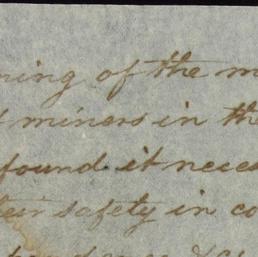 ning of the m
miners in the
found it neces
their safety in co